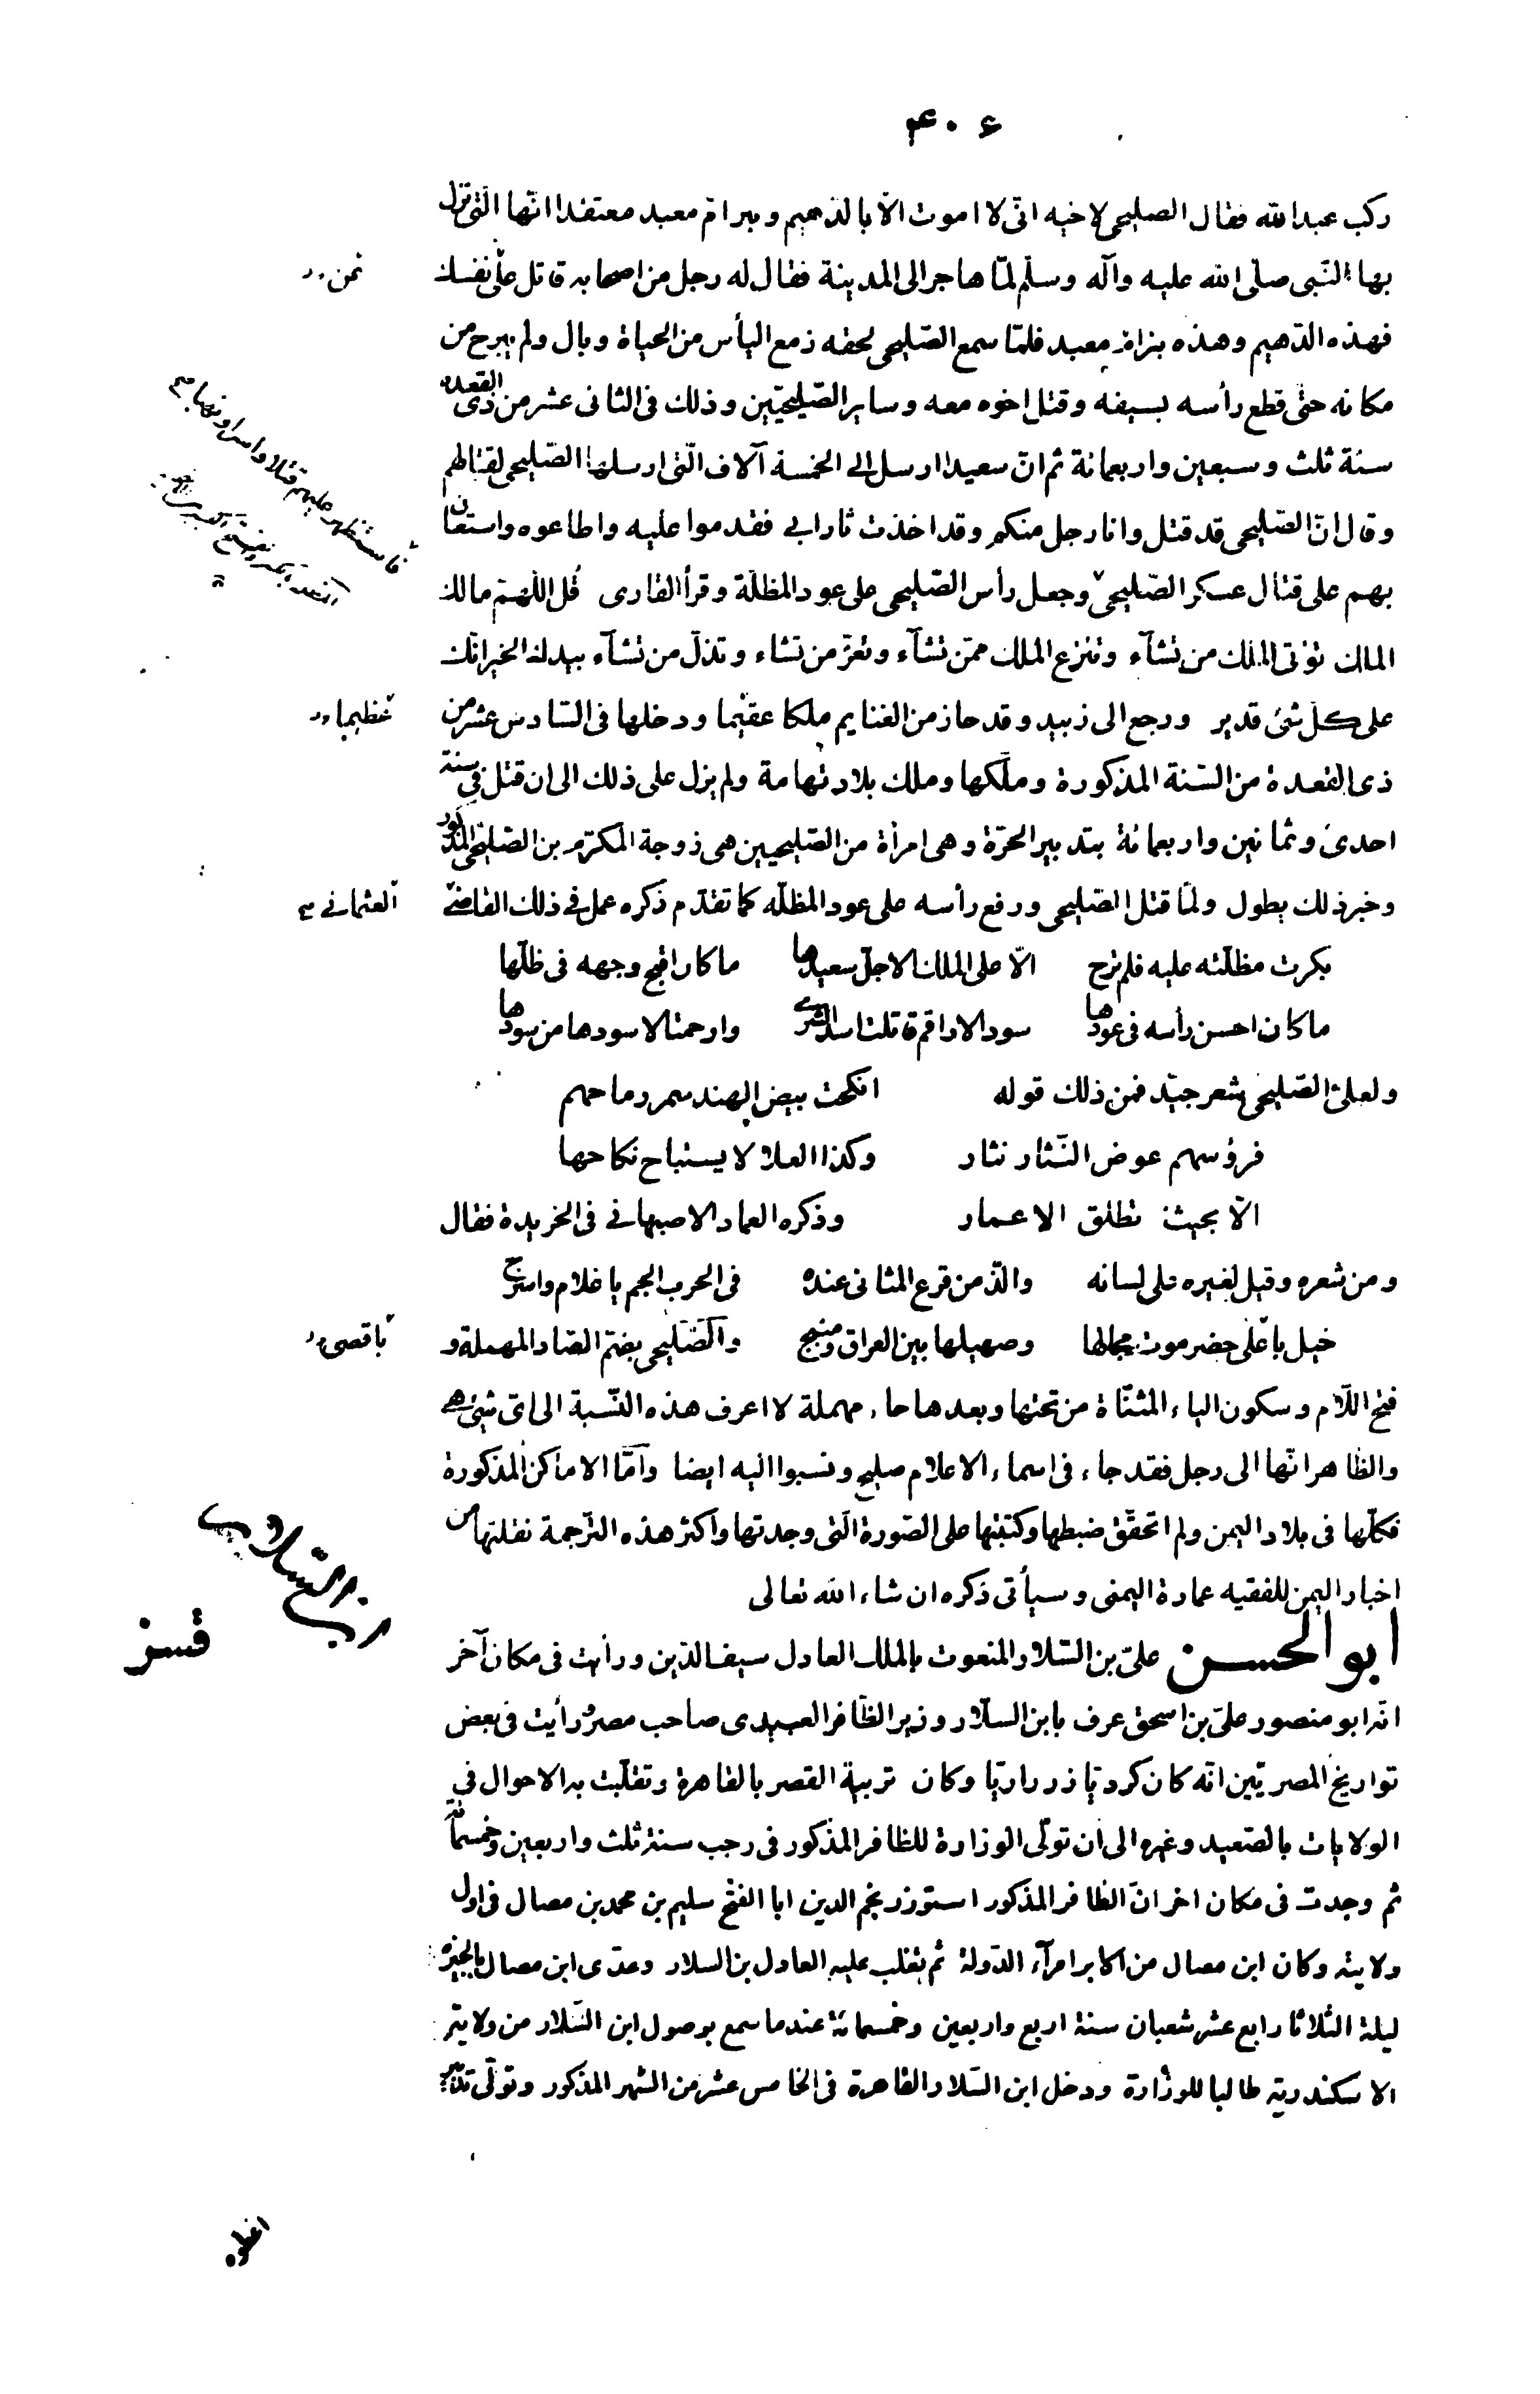 ۴۰۶
ركب عبدالله فقال الصليحى لاخيه انّى لا اموت الّا بالدّهيم وببرامّ معبد معتقدا انّها الّتى نزل
بها النّبى صلّى الله عليه وآله وسلّم لمّا هاجر الى المدينة فقال له رجل من اصحابه قاتل على نفسك
فهذه الدّهيم وهذه بئر امّ معبد فلمّا سمع الصّليحى لحقه زمع اليأس من الحياة وبال ولم يبرح من
مكانه حتّى قطع رأسه بسيفه وقتل اخوه معه وساير الصّليحيّين وذلك فى الثانى عشر من ذى القعده
سنة ثلث وسبعين واربعمائة ثم انّ سعيدا ارسل الى الخمسة آلاف الّتى ارسلها الصّليحى لقتالهم
وقال انّ الصّليحى قد قتل وانا رجل منكم وقد اخذت ثار ابى فقدموا عليه واطاعوه واستعان
بهم على قتال عسكر الصّليحى وجعل رأس الصّليحى على عود المظلّة وقرأ القارى قُل اللّهمّ مالك
الملك تؤتى الملك من تشآء وتنزع الملك ممّن تشآء وتعزّ من تشاء وتذلّ من تشآء بيدك الخير انّك
على كلّ شئ قدير ورجع الى زبيد وقد حاز من الغنايم ملكا عقيما ودخلها فى السّادس عشر من
ذى القعدة من السّنة المذكورة وملّكها وملك بلاد تهامة ولم يزل على ذلك الى ان قتل فى سنة
احدى وثمانين واربعمائة بتدبير الحرّة وهى امرأة من الصّليحيين هى زوجة المكرّم بن الصّليحى المذكور
وخبر ذلك يطول ولمّا قتل الصّليحى ورفع رأسه على عود المظلّه كما تقدّم ذكره عمل فى ذلك القاضى
بكرت مظلّته عليه فلم ترح الّا على الملك الاجلّ سعيدها ما كان اقبح وجهه فى ظلّها
ما كان احسن رأسه فى عودها سود الاراقم قاتلت اسد الشرى وارحمتا لاسودها من سودها
ولعلىّ الصّليحى شعر جيّد فمن ذلك قوله انكحت بيض الهند سمر رماحهم
فرؤسهم عوض النّثار نثار وكذا العلا لا يستباح نكاحها
الّا بحيث تطلق الاعمار وذكره العماد الاصبهانى فى الخريدة فقال
ومن شعره وقيل لغيره على لسانه والذّ من قرع المثانى عنده فى الحرب الجم يا غلام واسرج
خيل باعلى حضرموت مجالها وصهيلها بين العراق ومنبج والصّليحى بضمّ الصّاد المهملة و
فتح اللّام وسكون الياء المثنّاة من تحتها وبعدها حاء مهملة لا اعرف هذه النّسبة الى اىّ شئ هى
والظاهر انّها الى رجل فقد جاء فى اسماء الاعلام صليح ونسبوا اليه ايضا وامّا الاماكن المذكورة
فكلّها فى بلاد اليمن ولم اتحقّق ضبطها وكتبتها على الصّورة الّتى وجدتها واكثر هذه التّرجمة نقلتها من
اخبار اليمن للفقيه عمارة اليمنى وسيأتى ذكره ان شاء الله تعالى
ابو الحسن علىّ بن السّلار المنعوت بالملك العادل سيف الدّين ورأيت فى مكان آخر
انّه ابو منصور علىّ بن اسحق عرف بابن السلّار وزير الظّافر العبيدى صاحب مصر ورأيت فى بعض
تواريخ المصريّين انّه كان كرديّا زرزاريّا وكان تربية القصر بالقاهرة وتقلّبت به الاحوال فى
الولايات بالصّعيد وغيره الى ان تولّى الوزارة للظافر المذكور فى رجب سنة ثلث واربعين وخمسمائة
ثم وجدت فى مكان اخر انّ الظافر المذكور استوزر نجم الدين ابا الفتح سليم بن محمد بن مصال فى اول
ولايته وكان ابن مصال من اكابر امرآء الدّولة ثم تغلب عليه العادل بن السلار وعدّى ابن مصال بالجيزه
ليلة الثلاثا رابع عشر شعبان سنة اربع واربعين وخمسمائة عندما سمع بوصول ابن السّلار من ولايته
الاسكندرية طالبا للوزارة ودخل ابن السّلار القاهرة فى الخامس عشر من الشهر المذكور وتولّى
ثمن
عظيما
العثمانى
باقصى
ابن السّلار